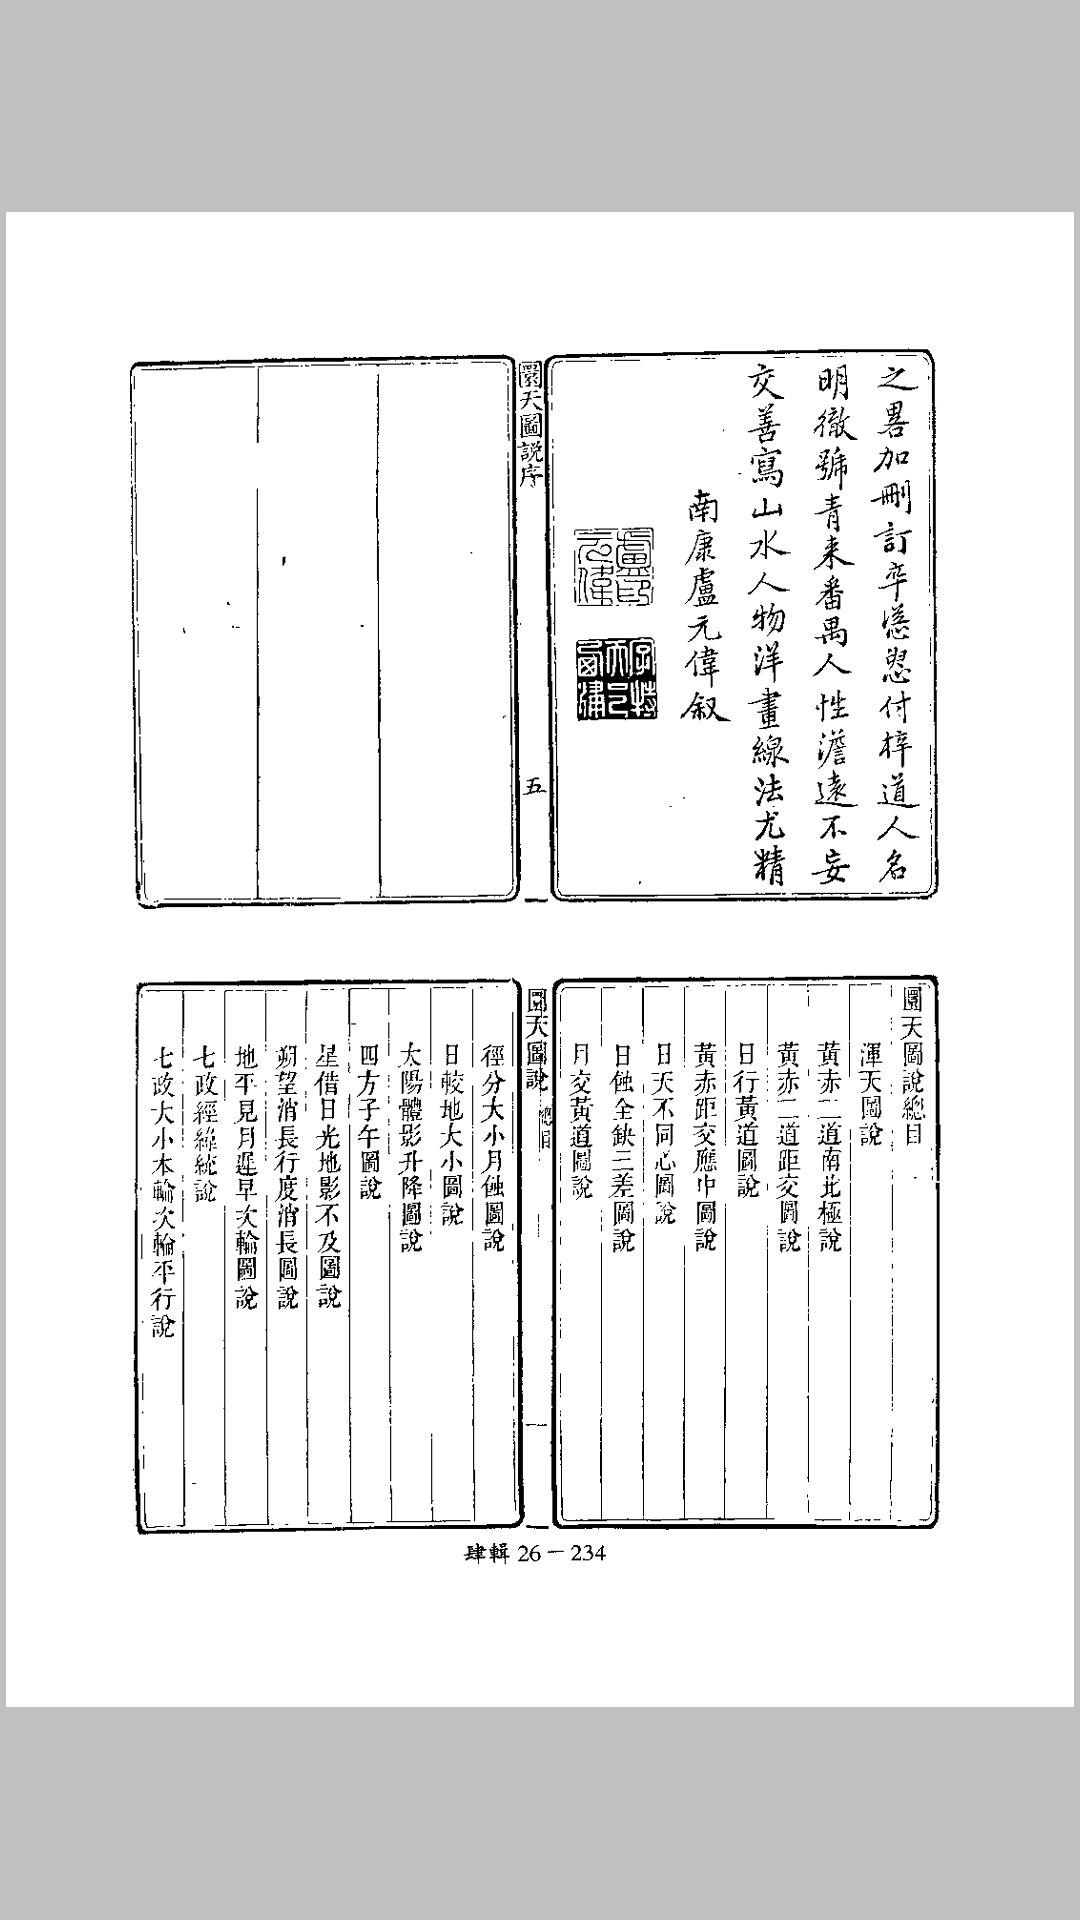 之畧加刪訂卒慫恿付梓道人名
明徹號青来番禺人性澹遠不妄
交善寫山水人物洋畫線法尤精
南康盧元偉叙
盧元偉印
圜天圖說序
五
圜天圖說總目
渾天圖說
黃赤二道南北極說
黃赤二道距交圖說
日行黃道圖說
黃赤距交應中圖說
日天不同心圖說
日蝕全缺三差圖說
月交黃道圖說
圜天圖說
總目
一
徑分大小月蝕圖說
日較地大小圖說
太陽體影升降圖說
四方子午圖說
星借日光地影不及圖說
朔望消長行度消長圖說
地平見月遲早次輪圖說
七政經緯統說
七政大小本輪次輪平行說
肆輯 26－234